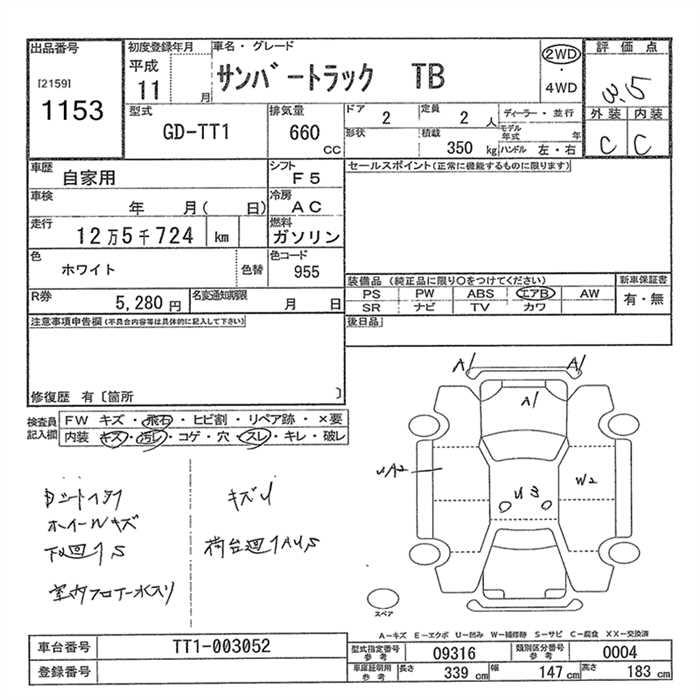 出品番号
[2159]
1153
初度登録年月
平成
11 月
車名・グレード
サンバートラック TB
2WD
・
4WD
評価点
3.5
外装 内装
C C
型式
GD-TT1
排気量
660 cc
ドア 2
定員 2 人
ディーラー・並行
形状
積載 350 kg
モデル年式 年
ハンドル 左・右
車歴 自家用
シフト F5
車検 年 月( 日)
冷房 AC
走行 12万5千724 km
燃料 ガソリン
色 ホワイト 色替
色コード 955
R券 5,280 円
名変通知期限 月 日
セールスポイント(正常に機能するものに限ります)
装備品 (純正品に限り○をつけてください)
PS PW ABS エアB AW
SR ナビ TV カワ
新車保証書
有・無
後日品
注意事項申告欄(不具合内容等は具体的に記入して下さい)
修復歴 有〔箇所 〕
検査員記入欄
FW キズ・飛石・ヒビ割・リペア跡・×要
内装 キズ・汚レ・コゲ・穴・スレ・キレ・破レ
ホイールキズ
下回りS
荷台廻りAUS
A1 A1
A1
UA2
W2
U3
スペア
A−キズ E−エクボ U−凹み W−補修跡 S−サビ C−腐食 XX−交換済
車台番号 TT1-003052
登録番号
型式指定番号 参考 09316
類別区分番号 参考 0004
車庫証明用 参考 長さ 339 cm 幅 147 cm 高さ 183 cm